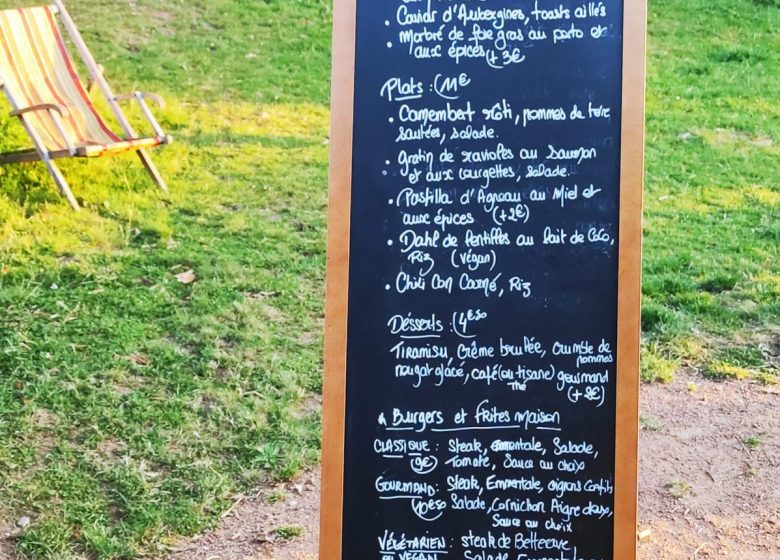 • Caviar d'Aubergines, toasts aillés
• Marbré de foie gras au porto et
aux épices (+3€
Plats : (11€
• Camembert rôti, pommes de terre
sautées, salade.
• gratin de ravioles au Saumon
et aux courgettes, salade.
• Pastilla d'Agneau au Miel et
aux épices (+2€)
• Dahl de lentilles au lait de Coco,
Riz (végan)
• Chili Con Carné, Riz
Désserts : (4€50
Tiramisu, Crème brulée, Crumble de
pommes
nougat glacé, café (ou tisane) gourmand
Thé
(+2€)
Burgers et frites maison
CLASSIQUE : Steak, Emmentale, Salade,
9€ Tomate, Sauce au choix
GOURMAND : Steak, Emmentale, oignons Confits
10€50 Salade, Cornichon Aigre doux,
Sauce au choix
VÉGÉTARIEN : steak de Betterave
OU VEGAN Salade